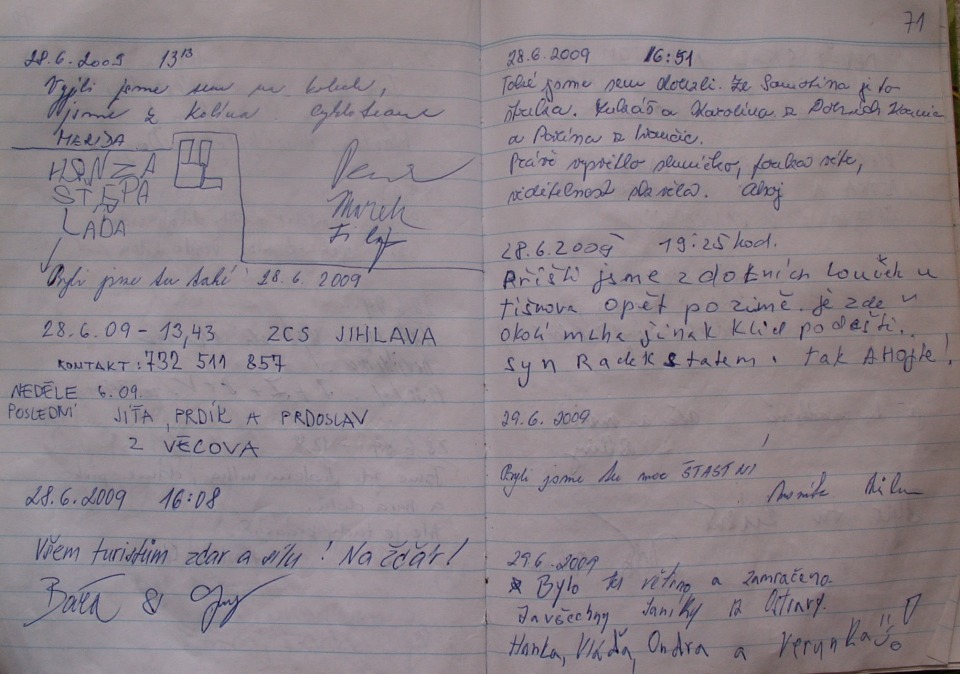 71
28.6.2009 13 13
Vyjeli jsme sem na kolech,
jsme z Kolína. Cykloteam
MERIDA
HONZA
ŠTĚPA
LÁDA
Marek
Byli jsme tu také 28.6.2009
28.6.09 - 13,43 ZCS JIHLAVA
KONTAKT: 732 511 857
NEDĚLE 6.09.
POSLEDNÍ JÍŤA, PRDÍK A PRDOSLAV
Z VĚCOVA
28.6.2009 16:08
Všem turistům zdar a sílu! Na žďár!
Bára &
28.6.2009 16:51
Také jsme sem dorazili. Ze Samotína je to
štreka. Lukáš a Karolína z Dolních
a Pavlína z Ivančic.
Právě vysvitlo sluníčko, fouká vítr,
viditelnost skvělá. Ahoj
28.6.2009 19:25 hod.
Přišli jsme z dolních Louček u
Tišnova opět po zimě. je zde v
okolí mlha jinak klid po dešti.
Syn Radek s tatem. tak AHojte!
29.6.2009
Byli jsme tu moc ŠŤASTNI
29.6.2009
Bylo tu větrno a zamračeno.
Za všechny Janíky z Ostravy.
Hanka, Vláďa, Ondra a Verunka